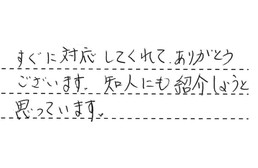 すぐに対応してくれて、ありがとう
ございます。知人にも紹介しようと
思っています。